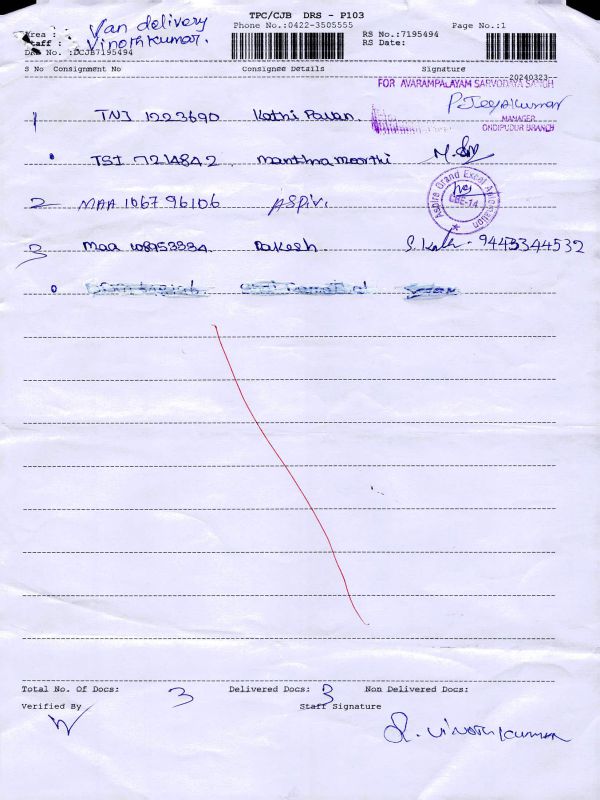 TPC/CJB DRS - P103
Area : Van delivery
Phone No.:0422-3505555
Page No.:1
Staff : Vinothkumar.
RS No.:7195494
RS Date:
DRS No. :DCJB7195494
S No Consignment No Consignee Details Signature
20240323
FOR AVARAMPALAYAM SARVODAYA SANGH
1 TNJ 1223690 Kathi Pavan. P. Jeyakumar
MANAGER
ONDIPUDUR BRANCH
TSI 7214842 manthra moorthi
2 MAA 106796106
Aspire Grand Excel Association
CBE-14
3 maa 108953334 Rakesh S. Kala - 9443344532
Total No. Of Docs: 3 Delivered Docs: 3 Non Delivered Docs:
Verified By Staff Signature
R. Vinothkumar